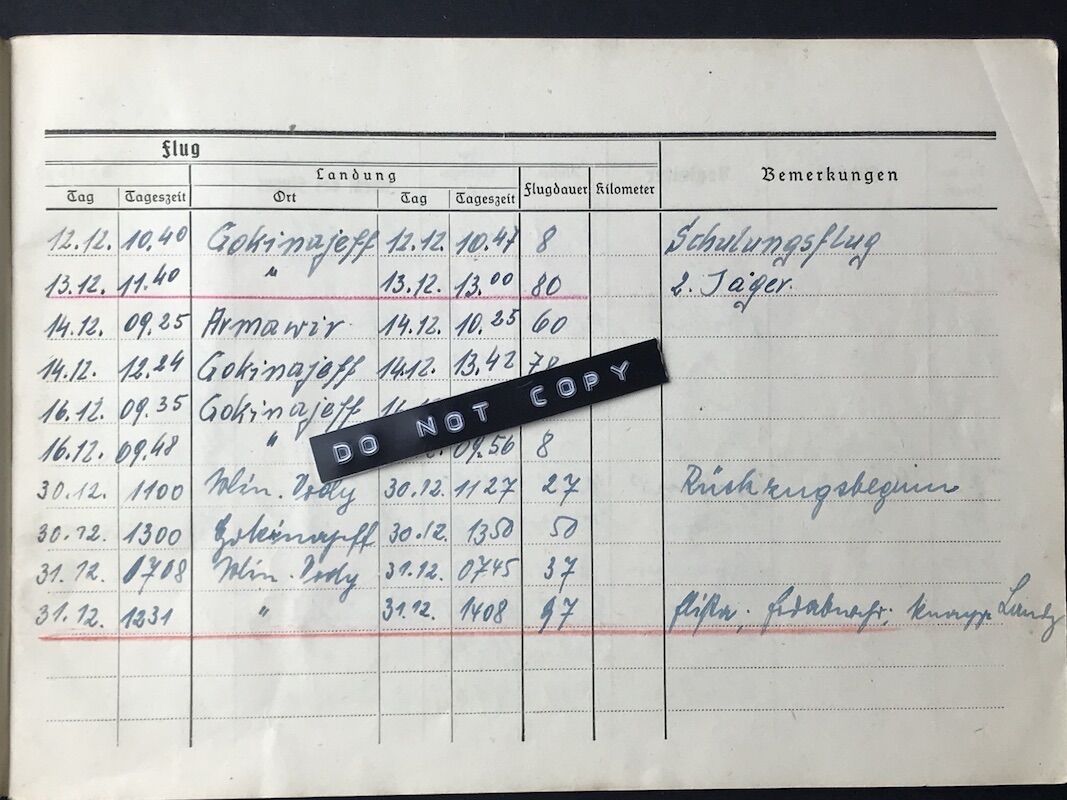 Flug
Landung
Bemerkungen
Tag Tageszeit Ort Tag Tageszeit Flugdauer Kilometer
12.12. 10.40 Gokinajeff 12.12. 10.47 8 Schulungsflug
13.12. 11.40 " 13.12. 13.00 80 2. Jäger.
14.12. 09.25 Armawir 14.12. 10.25 60
14.12. 12.24 Gokinajeff 14.12. 13.42 78
16.12. 09.35 Gokinajeff
DO NOT COPY
16.12. 09.48 " 09.56 8
30.12. 1100 Min. Vody 30.12. 1127 27 Rückzugsbeginn
30.12. 1300 Gokinajeff 30.12. 1350 50
31.12. 0708 Min. Vody 31.12. 0745 37
31.12. 1231 " 31.12. 1408 97 Elista, Erdabwehr, knappe